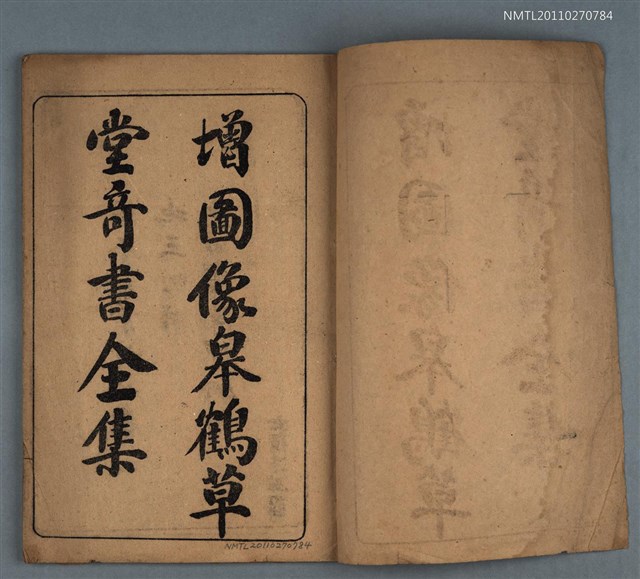 NMTL20110270784
增圖像皋鶴草
堂奇書全集
NMTL20110270784